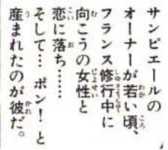 サンピエールの
オーナーが若い頃、
フランス修行中に
向こうの女性と
恋に落ち……
そして… ポン！と
産まれたのが彼だ。